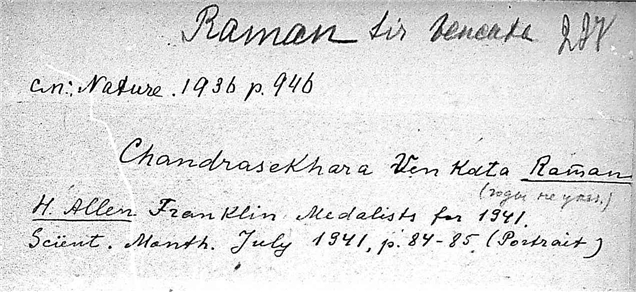 Raman Sir Vencata
см: Nature. 1936 p. 946
Chandrasekhara Venkata Raman
(годы не указ.)
H. Allen Franklin Medalists for 1941.
Scient. Month. July 1941, p. 84-85. (Portrait)